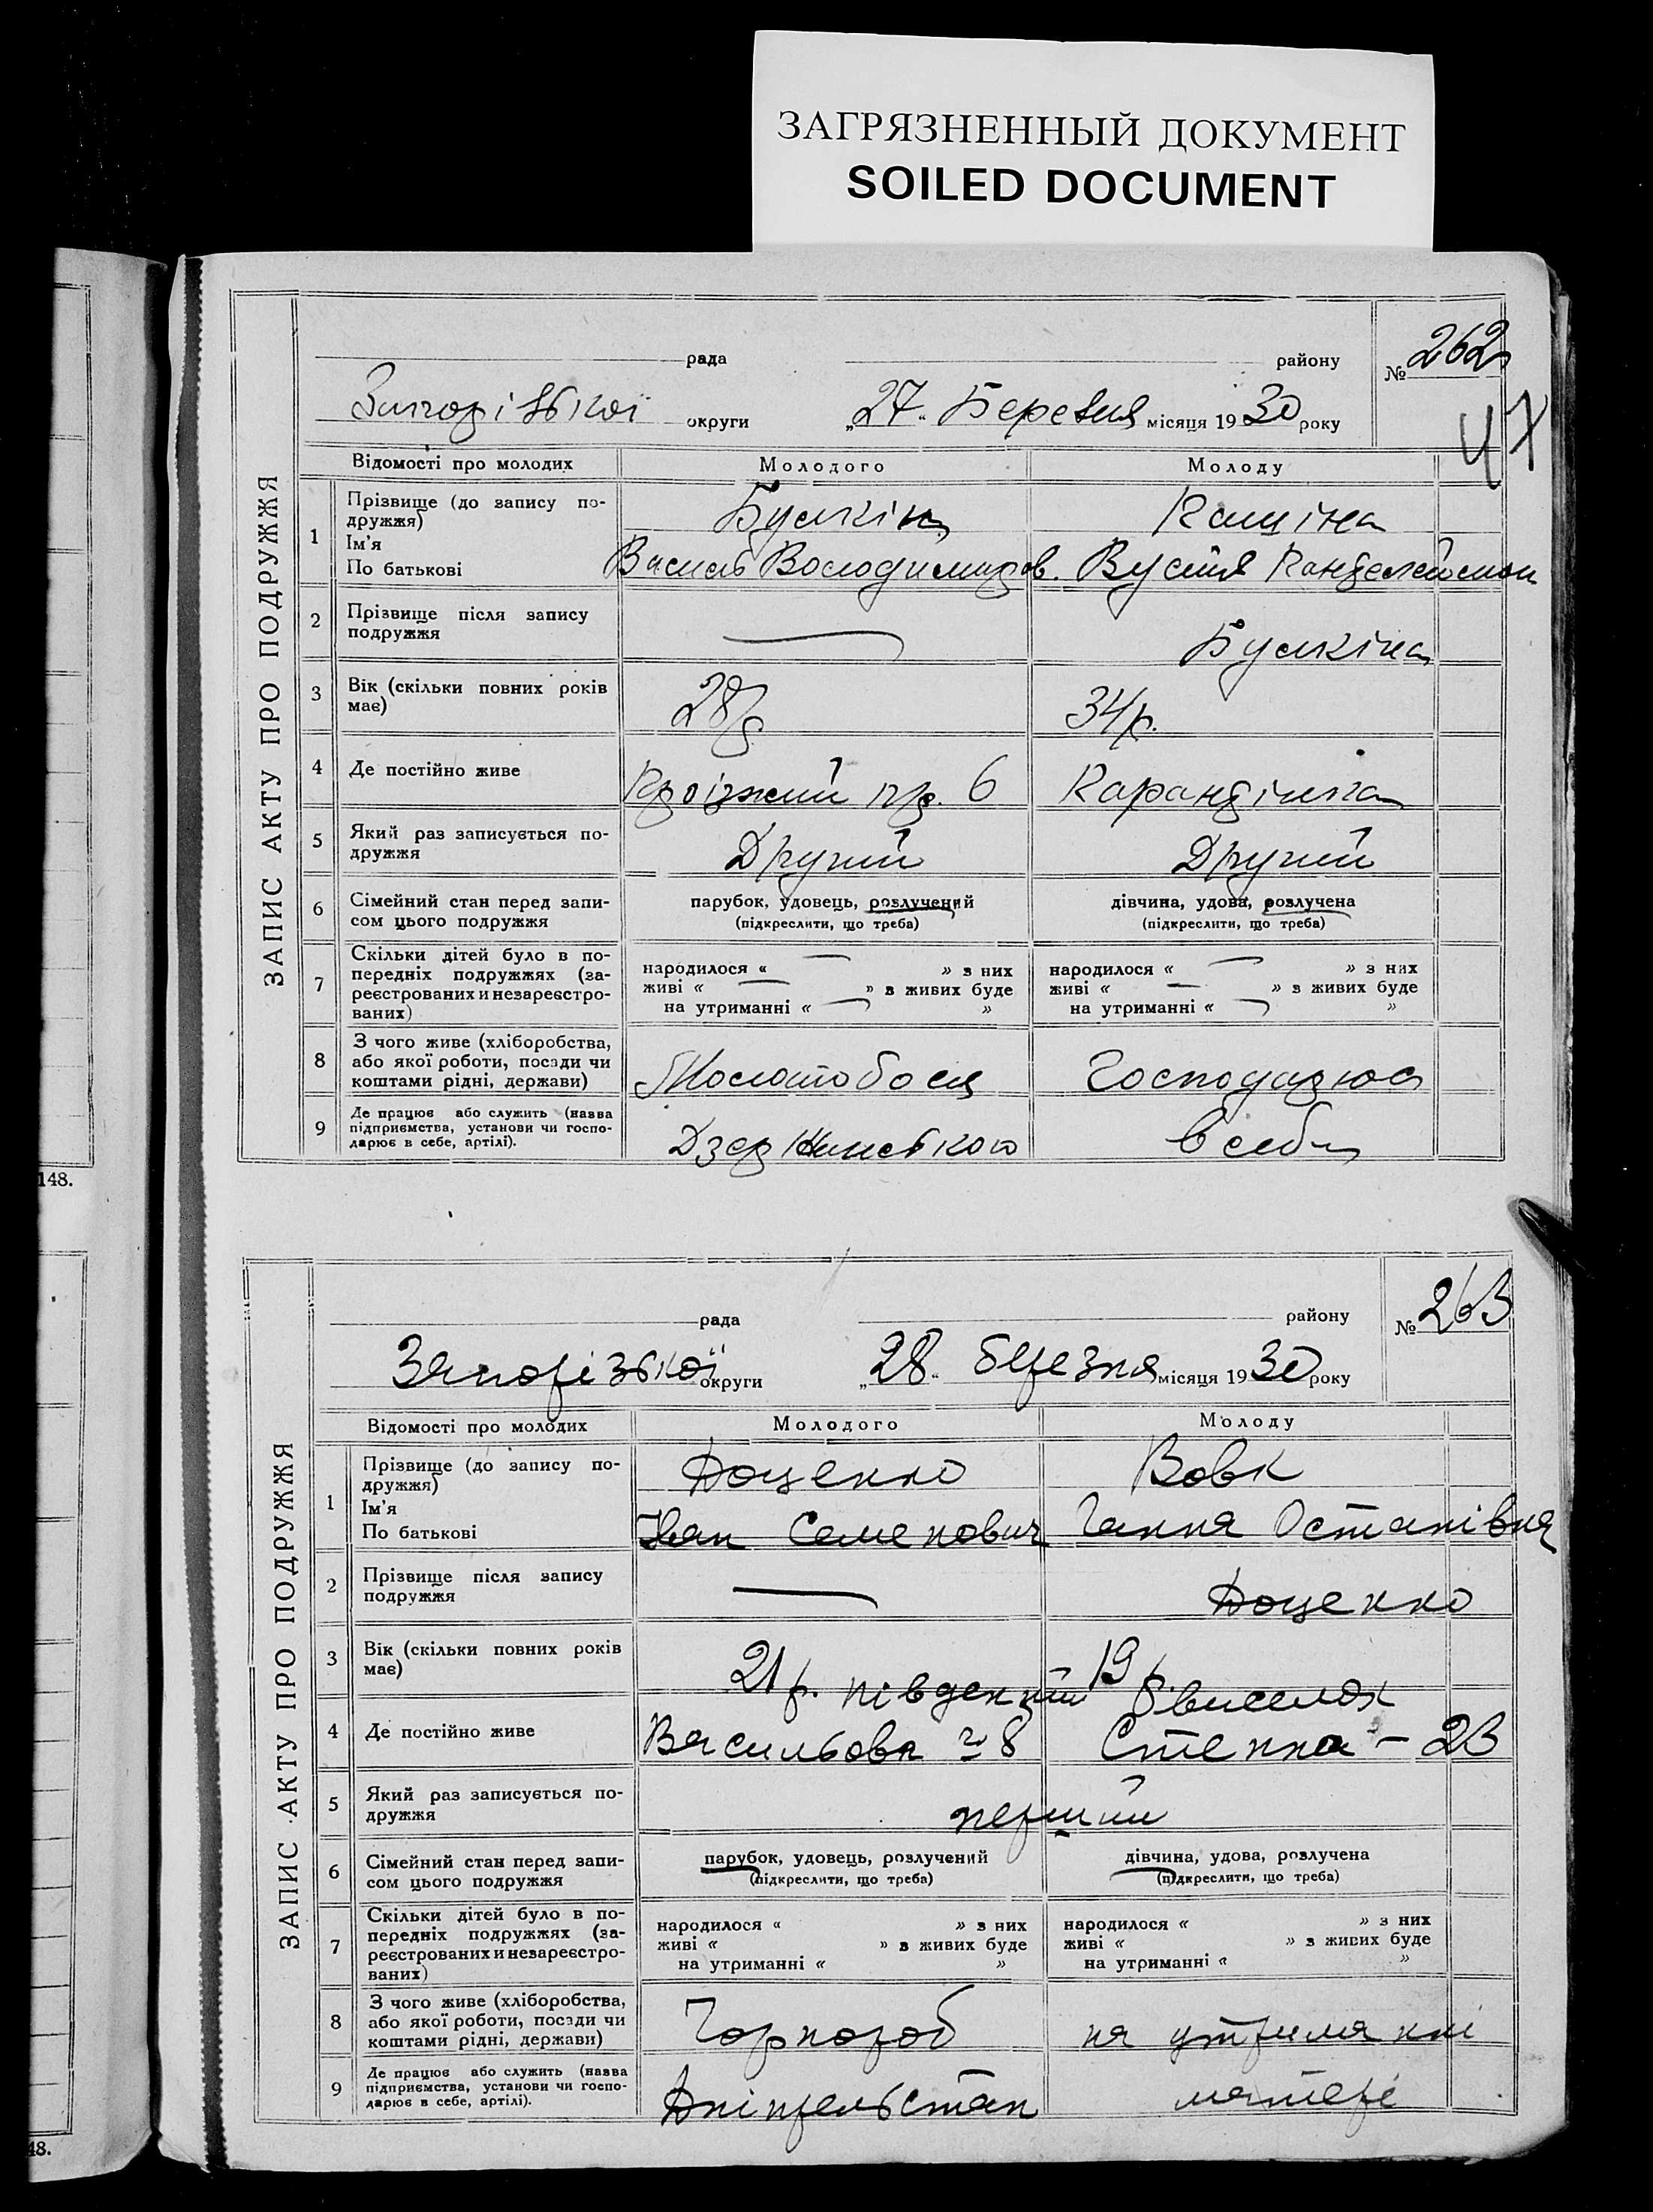 ЗАГРЯЗНЕННЫЙ ДОКУМЕНТ
SOILED DOCUMENT
148.
48.
ЗАПИС АКТУ ПРО ПОДРУЖЖЯ
рада району № 262
Запорізької округи „27“ Березня місяця 1930 року
47
Відомості про молодих Молодого Молоду
1 Прізвище (до запису по-
дружжя)
Ім'я
По батькові
Булкін Кашіна
Василь Володимиров. Вустя
2 Прізвище після запису
подружжя
— Булкіна
3 Вік (скільки повних років
має)
28р. 34р.
4 Де постійно живе
пр. 6 Карантінка
5 Який раз записується по-
дружжя
Другий Другий
6 Сімейний стан перед запи-
сом цього подружжя
парубок, удовець, розлучений дівчина, удова, розлучена
(підкреслити, що треба) (підкреслити, що треба)
7 Скільки дітей було в по-
передніх подружжях (за-
реєстрованих и незареєстро-
ваних)
народилося « — » з них народилося « — » з них
живі « — » в живих буде живі « — » з живих буде
на утриманні « — » на утриманні « — »
8 З чого живе (хліборобства,
або якої роботи, посади чи
коштами рідні, держави)
Молотобоєц Господарює
9 Де працює або служить (назва
підприємства, установи чи госпо-
дарює в себе, артілі).
Дзержинського в себе
ЗАПИС АКТУ ПРО ПОДРУЖЖЯ
рада району № 263
Запорізької округи „28“ березня місяця 1930 року
Відомості про молодих Молодого Молоду
1 Прізвище (до запису по-
дружжя)
Ім'я
По батькові
Доценко Вовк
Іван Семенович Ганна Остапівна
2 Прізвище після запису
подружжя
— Доценко
3 Вік (скільки повних років
має)
21 р. 19 р.
південний виселок
4 Де постійно живе
Васильова № 8 Стенна - 23
5 Який раз записується по-
дружжя
перший
6 Сімейний стан перед запи-
сом цього подружжя
парубок, удовець, розлучений дівчина, удова, розлучена
(підкреслити, що треба) (підкреслити, що треба)
7 Скільки дітей було в по-
передніх подружжях (за-
реєстрованих и незареєстро-
ваних)
народилося « » з них народилося « » з них
живі « » в живих буде живі « » з живих буде
на утриманні « » на утриманні « »
8 З чого живе (хліборобства,
або якої роботи, посади чи
коштами рідні, держави)
Чорнороб на утриманні
9 Де працює або служить (назва
підприємства, установи чи госпо-
дарює в себе, артілі).
Дніпрельстан матері